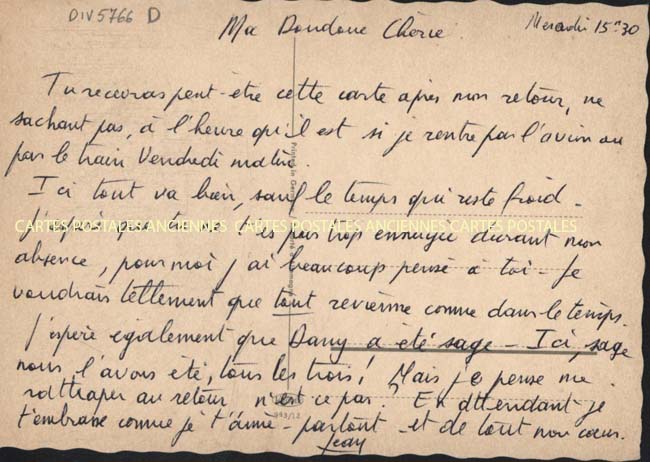 DIV5766 D
Ma Doudoue Chérie.
Mercredi 15h30
Tu recevras peut-être cette carte après mon retour, ne
sachant pas, à l'heure qu'il est si je rentre par l'avion ou
par le train Vendredi matin.
Ici tout va bien, sauf le temps qui reste froid -
CARTES POSTALES ANCIENNES CARTES POSTALES ANCIENNES CARTES POSTALES
J'espère que tu ne t'es pas trop ennuyée durant mon
absence, pour moi j'ai beaucoup pensé à toi - Je
voudrais tellement que tout revienne comme dans le temps.
J'espère également que Dany a été sage - Ici, sage
nous l'avons été, tous les trois! Mais je pense me
rattraper au retour n'est ce pas. En attendant je
t'embrasse comme je t'aime - partout et de tout mon cœur.
Jean